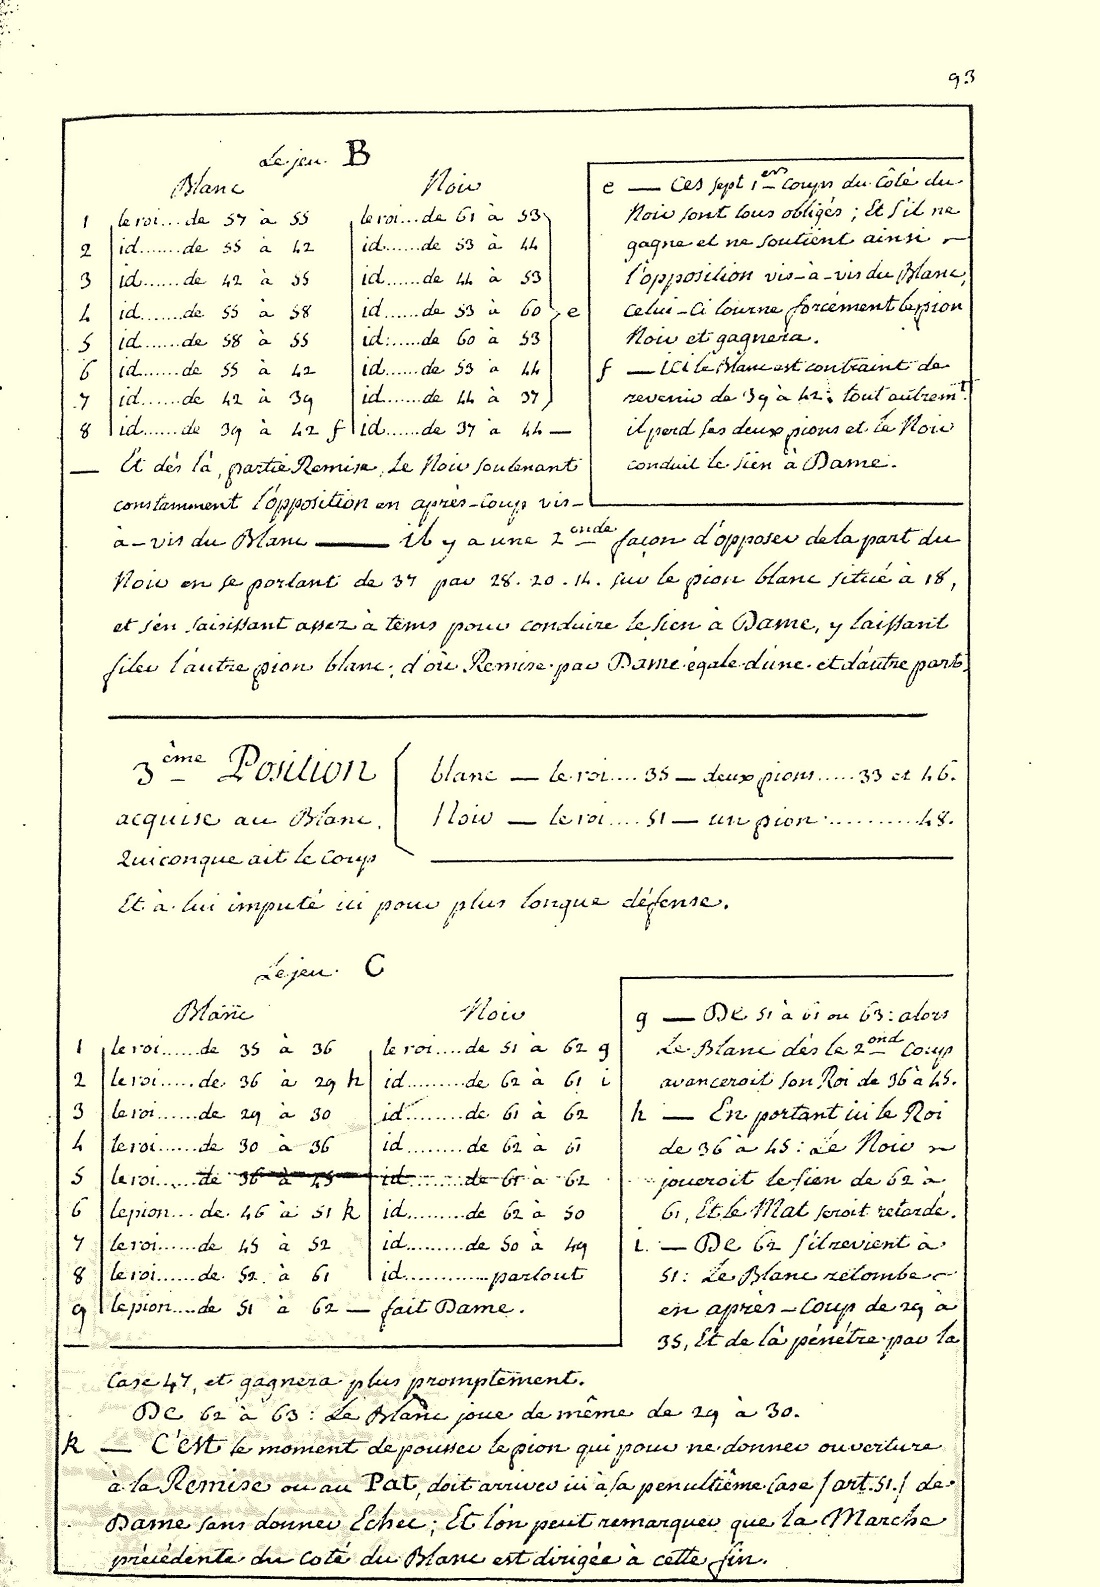 93
Le jeu. B
Blanc Noir
1 le roi....de 57 à 55 le roi...de 61 à 53
2 id.......de 55 à 42 id......de 53 à 44
3 id......de 42 à 55 id......de 44 à 53
4 id.......de 55 à 58 id......de 53 à 60 e
5 id......de 58 à 55 id......de 60 à 53
6 id......de 55 à 42 id......de 53 à 44
7 id......de 42 à 39 id......de 44 à 37
8 id......de 39 à 42 f id......de 37 à 44 —
— Et dès là, partie Remise, Le Noir soutenant
constamment l'opposition en après-coup vis-
e — Ces sept 1ers coups du côté du
Noir sont tous obligés ; Et s'il ne
gagne et ne soutient ainsi
l'opposition vis-à-vis du Blanc,
celui-ci tourne forcément le pion
Noir et gagnera.
f — ici le Blanc est contraint de
revenir de 39 à 42 : tout autremt.
il perd ses deux pions et le Noir
conduit le sien à Dame.
à-vis du Blanc — il y a une 2onde façon d'opposer de la part du
Noir en se portant de 37 par 28. 20. 14. sur le pion blanc situé à 18,
et s'en saisissant assez à tems pour conduire le sien à Dame, y laissant
filer l'autre pion blanc ; d'où Remise par Dame égale d'une et d'autre part.
3ème Position
acquise au Blanc.
Quiconque ait le coup
blanc — le roi.... 35 — deux pions.....33 et 46.
Noir — le roi.... 51 — un pion...........48.
Et à lui imputé ici pour plus longue défense.
Le jeu. C
Blanc Noir
1 le roi.....de 35 à 36 le roi....de 51 à 62 g
2 le roi.....de 36 à 29 h id........de 62 à 61 i
3 le roi.....de 29 à 30 id........de 61 à 62
4 le roi.....de 30 à 36 id........de 62 à 61
5 le roi.....de 36 à 45 id........de 61 à 62
6 le pion...de 46 à 51 k id........de 62 à 50
7 le roi.....de 45 à 52 id........de 50 à 49
8 le roi.....de 52 à 61 id............partout
9 le pion....de 51 à 62 — fait Dame.
g — De 51 à 61 ou 63 : alors
Le Blanc dès le 2ond coup
avanceroit son Roi de 36 à 45.
h — En portant ici le Roi
de 36 à 45 : Le Noir
joueroit le sien de 62 à
61, Et le Mat seroit retardé.
i. — De 62 s'il revient à
51 : Le Blanc retombe
en après-coup de 29 à
35, Et de là pénètre par la
case 47, et gagnera plus promptement.
De 62 à 63 : Le Blanc joue de même de 29 à 30.
k — C'est le moment de pousser le pion qui pour ne donner ouverture
à la Remise ou au Pat, doit arriver ici à sa penultième case (art. 51.) de
Dame sans donner Echec ; Et l'on peut remarquer que la Marche
précédente du coté du Blanc est dirigée à cette fin.